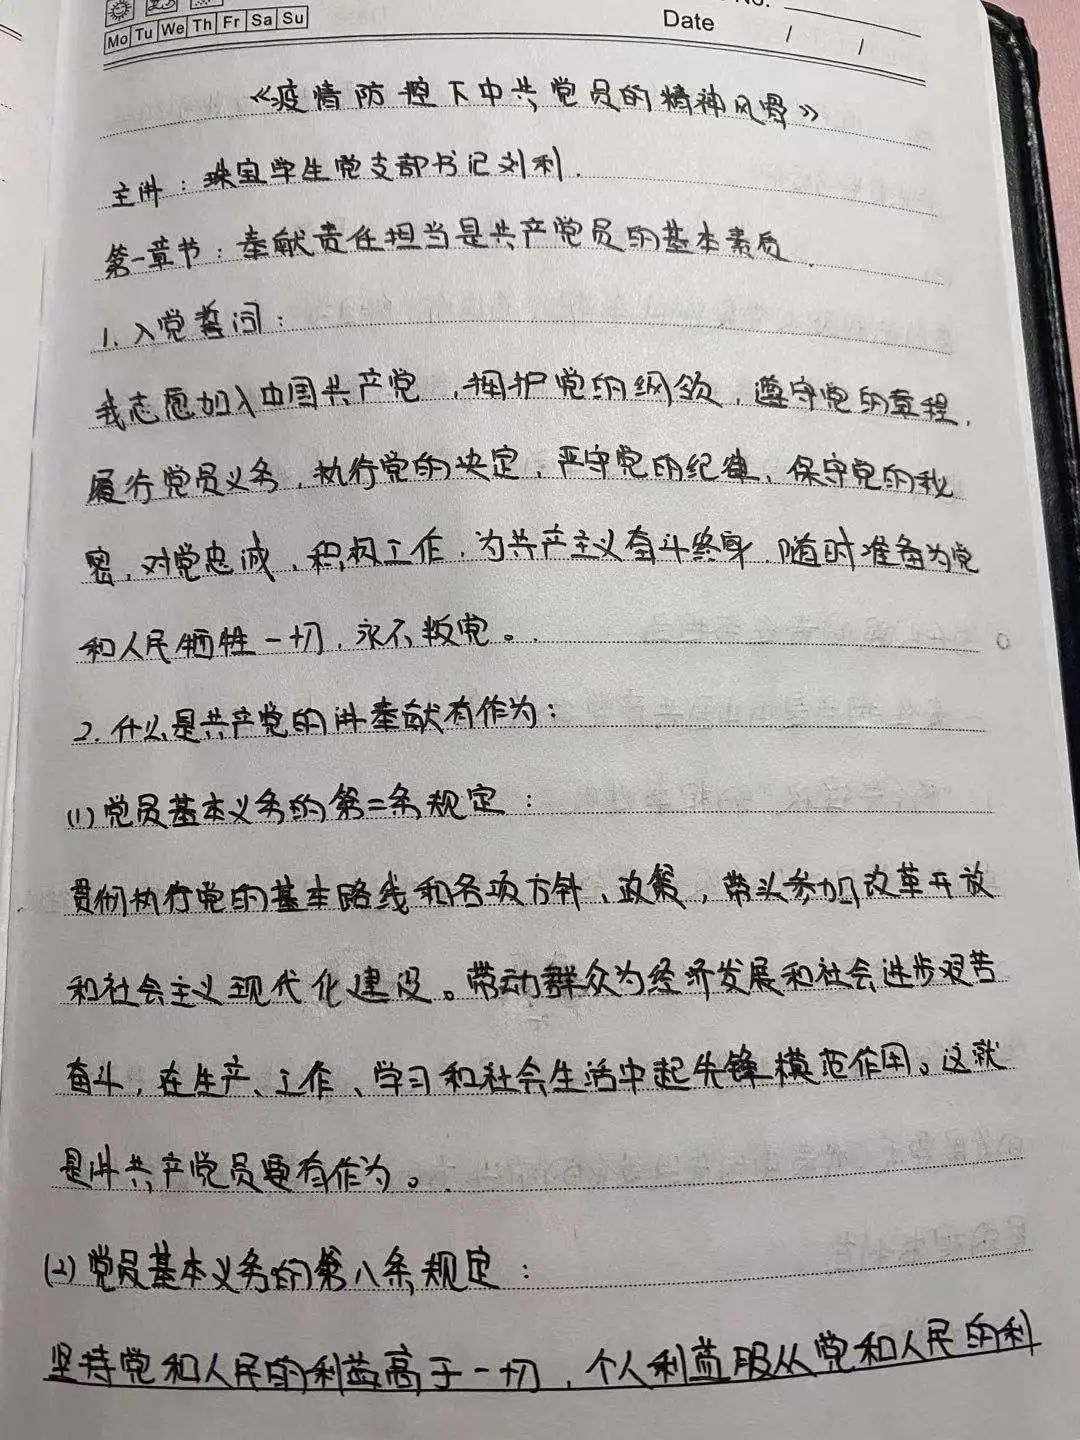 No.
Mo Tu We Th Fr Sa Su
Date / /
《疫情防控下中共党员的精神风骨》
主讲：珠宝学生党支部书记刘利.
第一章节：奉献责任担当是共产党员的基本素质.
1. 入党誓词：
我志愿加入中国共产党，拥护党的纲领，遵守党的章程，
履行党员义务，执行党的决定，严守党的纪律，保守党的秘
密，对党忠诚，积极工作，为共产主义奋斗终身，随时准备为党
和人民牺牲一切，永不叛党。
2. 什么是共产党的讲奉献有作为：
(1)党员基本义务的第二条规定：
贯彻执行党的基本路线和各项方针、政策，带头参加改革开放
和社会主义现代化建设。带动群众为经济发展和社会进步艰苦
奋斗，在生产、工作、学习和社会生活中起先锋模范作用。这就
是讲共产党员要有作为。
(2)党员基本义务的第八条规定：
坚持党和人民的利益高于一切，个人利益服从党和人民的利